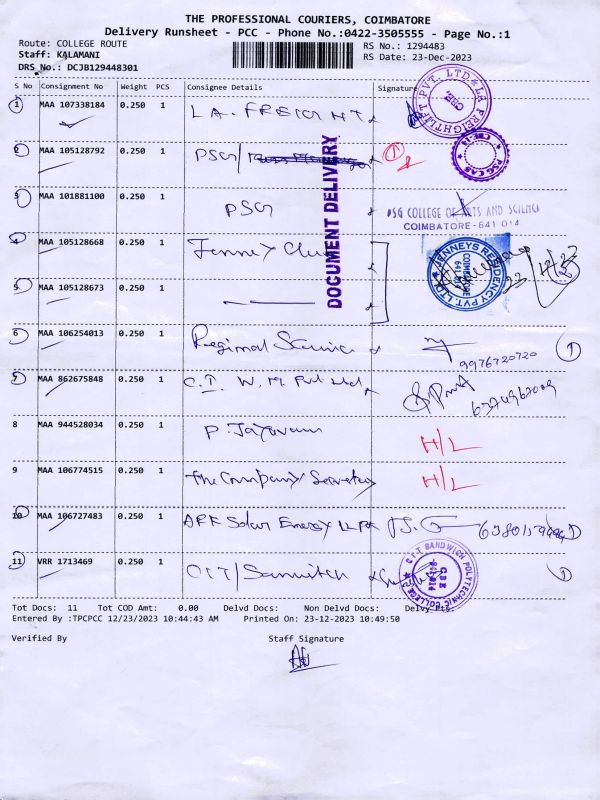 THE PROFESSIONAL COURIERS, COIMBATORE
Delivery Runsheet - PCC - Phone No.:0422-3505555 - Page No.:1
Route: COLLEGE ROUTE
RS No.: 1294483
Staff: KALAMANI
RS Date: 23-Dec-2023
DRS No.: DCJB129448301
S No Consignment No Weight PCS Consignee Details Signature
1 MAA 107338184 0.250 1 L.A. FREIGHT
2 MAA 105128792 0.250 1 PSG/
PSG CAS
DOCUMENT DELIVERY
3 MAA 101881100 0.250 1 PSG
PSG COLLEGE OF ARTS AND SCIENCE
COIMBATORE-641 014
4 MAA 105128668 0.250 1 Jenney Club
JENNEYS RESIDENCY PVT. LTD.
COIMBATORE
641 014
5 MAA 105128673 0.250 1
6 MAA 106254013 0.250 1 Regional Science
9976720720 1
7 MAA 862675848 0.250 1 C.I. W.M. Pvt Ltd
8 MAA 944528034 0.250 1 P. Jayaram H/L
9 MAA 106774515 0.250 1 The Company Secretary H/L
10 MAA 106727483 0.250 1 Solar Energy LLP
11 VRR 1713469 0.250 1 CIT/Sanwitch
CIT SANDWICH POLYTECHNIC COLLEGE
Tot Docs: 11 Tot COD Amt: 0.00 Delvd Docs: Non Delvd Docs: Delvy Pts:
Entered By :TPCPCC 12/23/2023 10:44:43 AM Printed On: 23-12-2023 10:49:50
Verified By Staff Signature